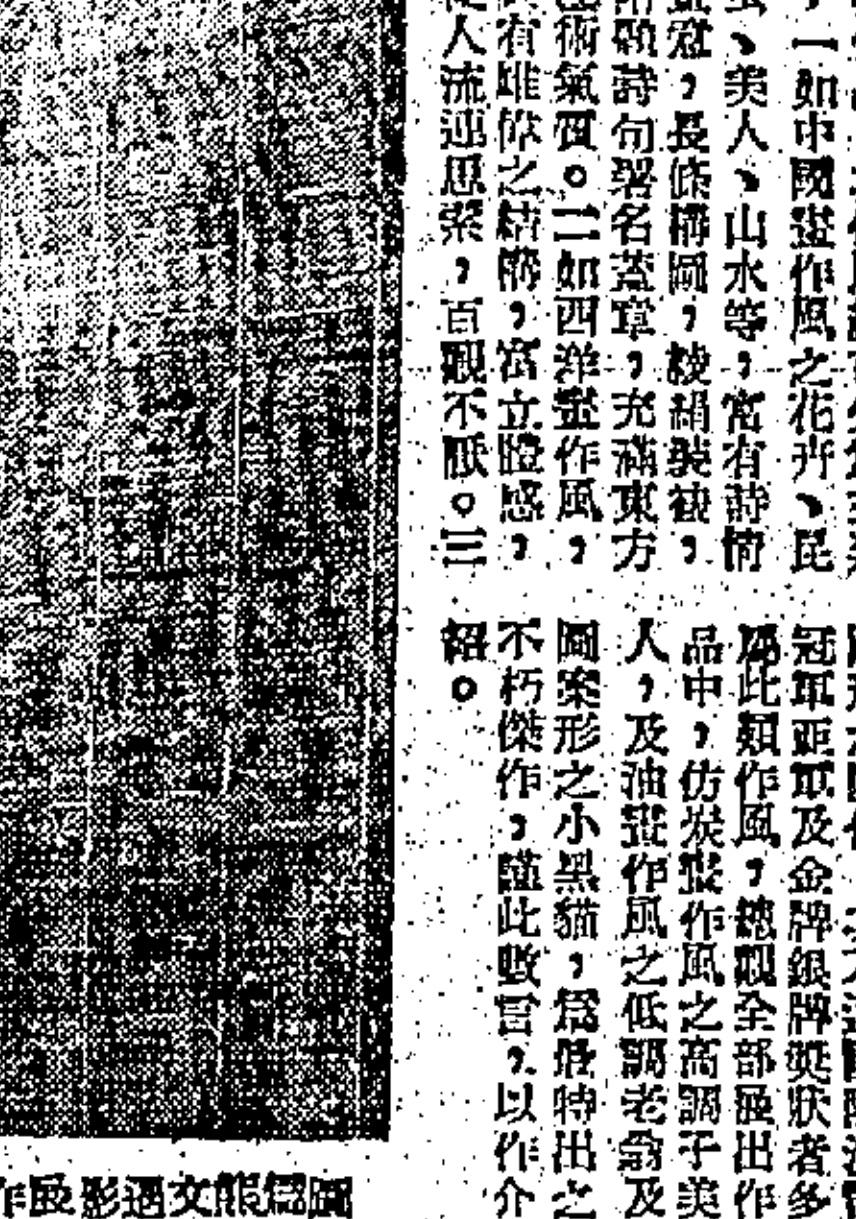 一如中國畫作風之花卉、昆
、美人、山水等，富有詩情
，長條構圖，綾絹裝裱，
詩句署名蓋章，充滿東方
術氣質。二如西洋畫作風，
有雄偉之結構，富立體感，
人流連思索，百觀不厭。三
冠軍亞軍及金牌銀牌奬狀者多
為此類作風，總觀全部展出作
品中，仿炭畫作風之高調子美
人，及油畫作風之低調老翁及
圖案形之小黑貓，為最特出之
不朽傑作，謹此數言，以作介
紹。
圖為熊文遇影展作